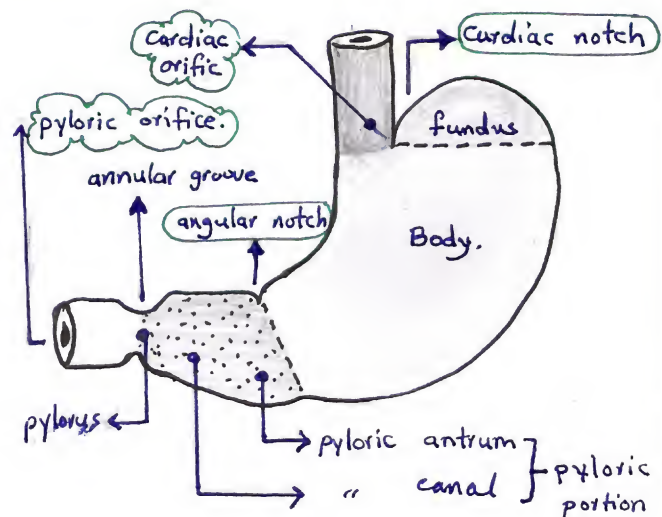 Cardiac
orific
Cardiac notch
pyloric orifice.
fundus
annular groove
angular notch
Body.
pylorus
pyloric antrum
〃 canal
pyloric
portion